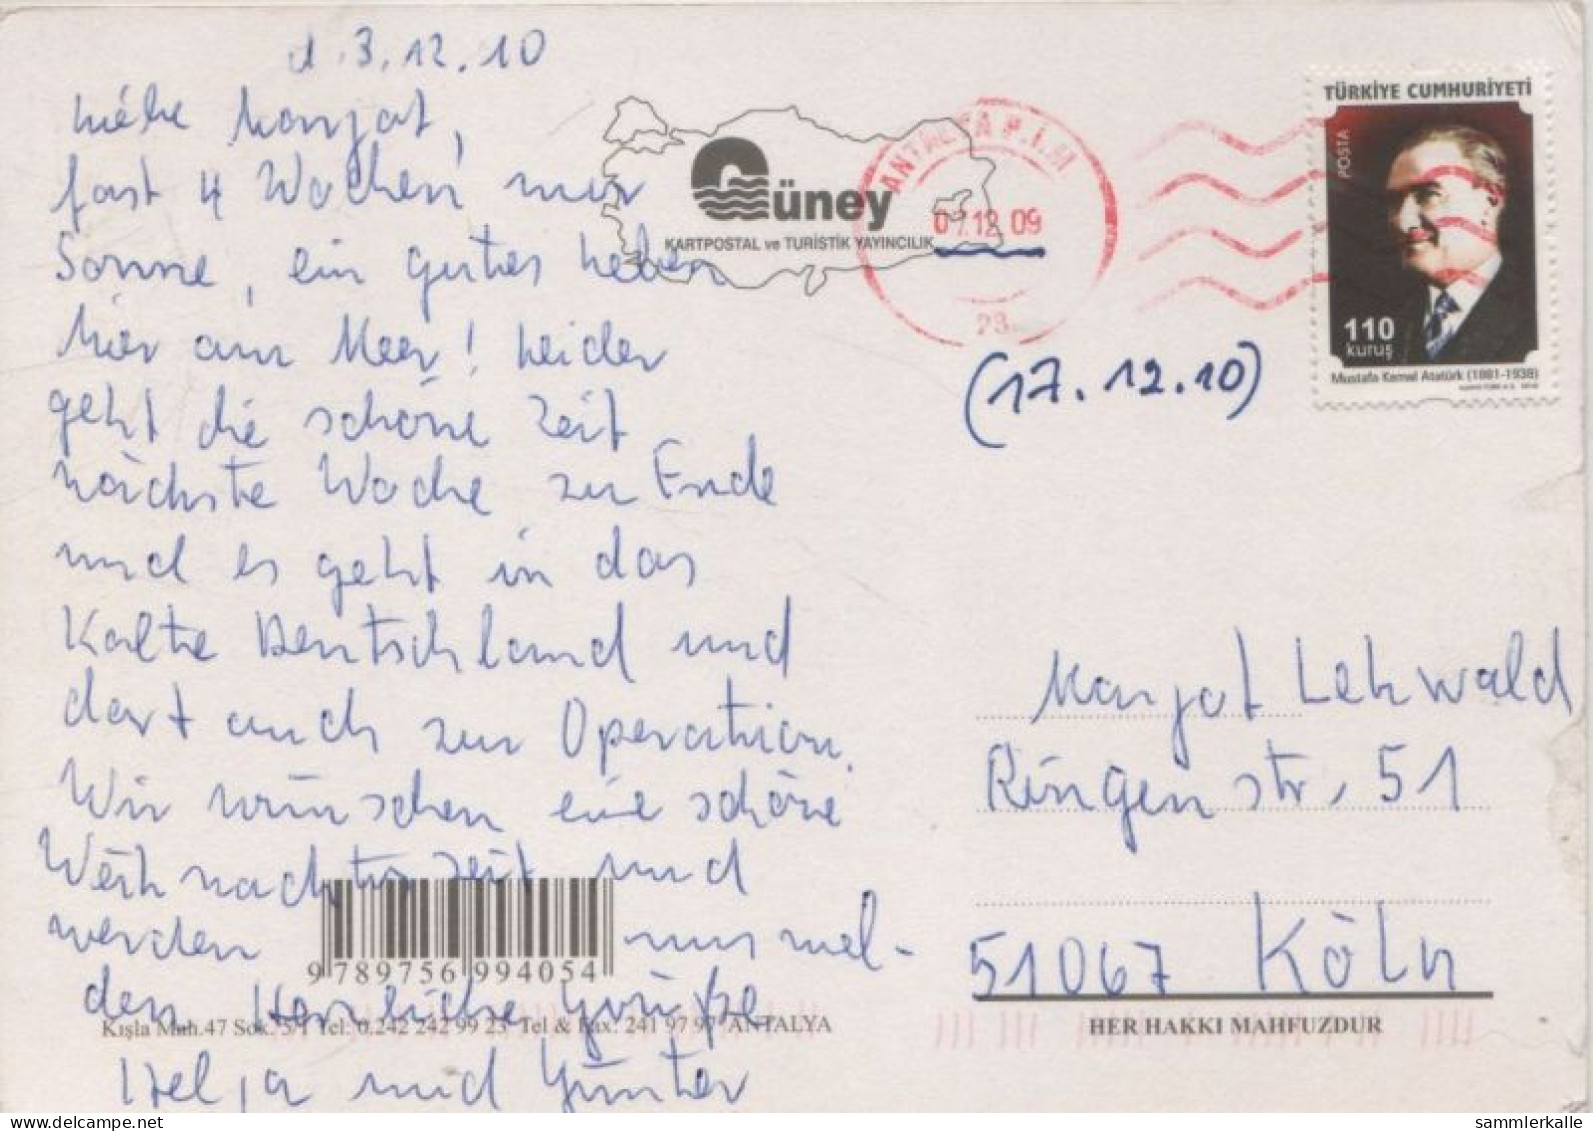 d. 3.12.10
Liebe Margot,
fast 4 Wochen nur
Sonne, ein gutes Leben
hier am Meer! Leider
geht die schöne Zeit
nächste Woche zu Ende
und es geht in das
kalte Deutschland und
dort auch zur Operation.
Wir wünschen eine schöne
Weihnachtszeit und
werden uns mel-
den Herzliche Grüße
Helga und Günter
Güney
KARTPOSTAL ve TURİSTİK YAYINCILIK
ANTALYA P.İ.M
07.12 09
TÜRKİYE CUMHURİYETİ
POSTA
110
kuruş
Mustafa Kemal Atatürk (1881-1938)
(17.12.10)
Margot Lehwald
Ringenstr. 51
51067 Köln
9 789756 994054
Kışla Mah.47 Sok. 5/1 Tel: 0.242 242 99 23 Tel & Fax: 241 97 97 ANTALYA
HER HAKKI MAHFUZDUR
delcampe.net
sammlerkalle